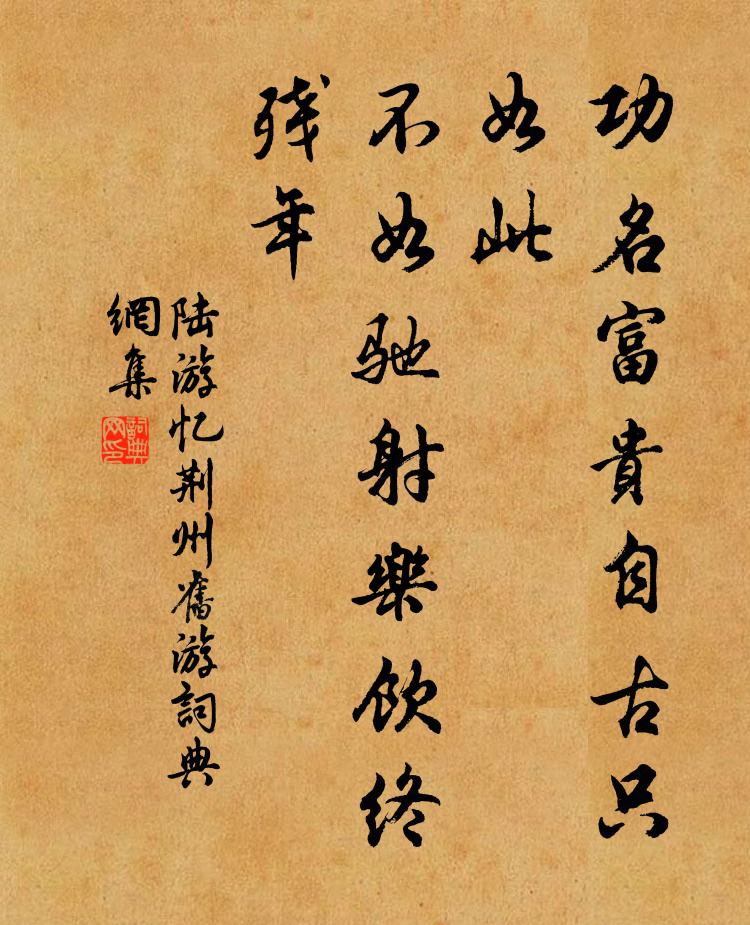 功名富貴自古只
如此
不如馳射樂飲終
殘年
陆游忆荆州舊游詞典
網集
詞典
网印